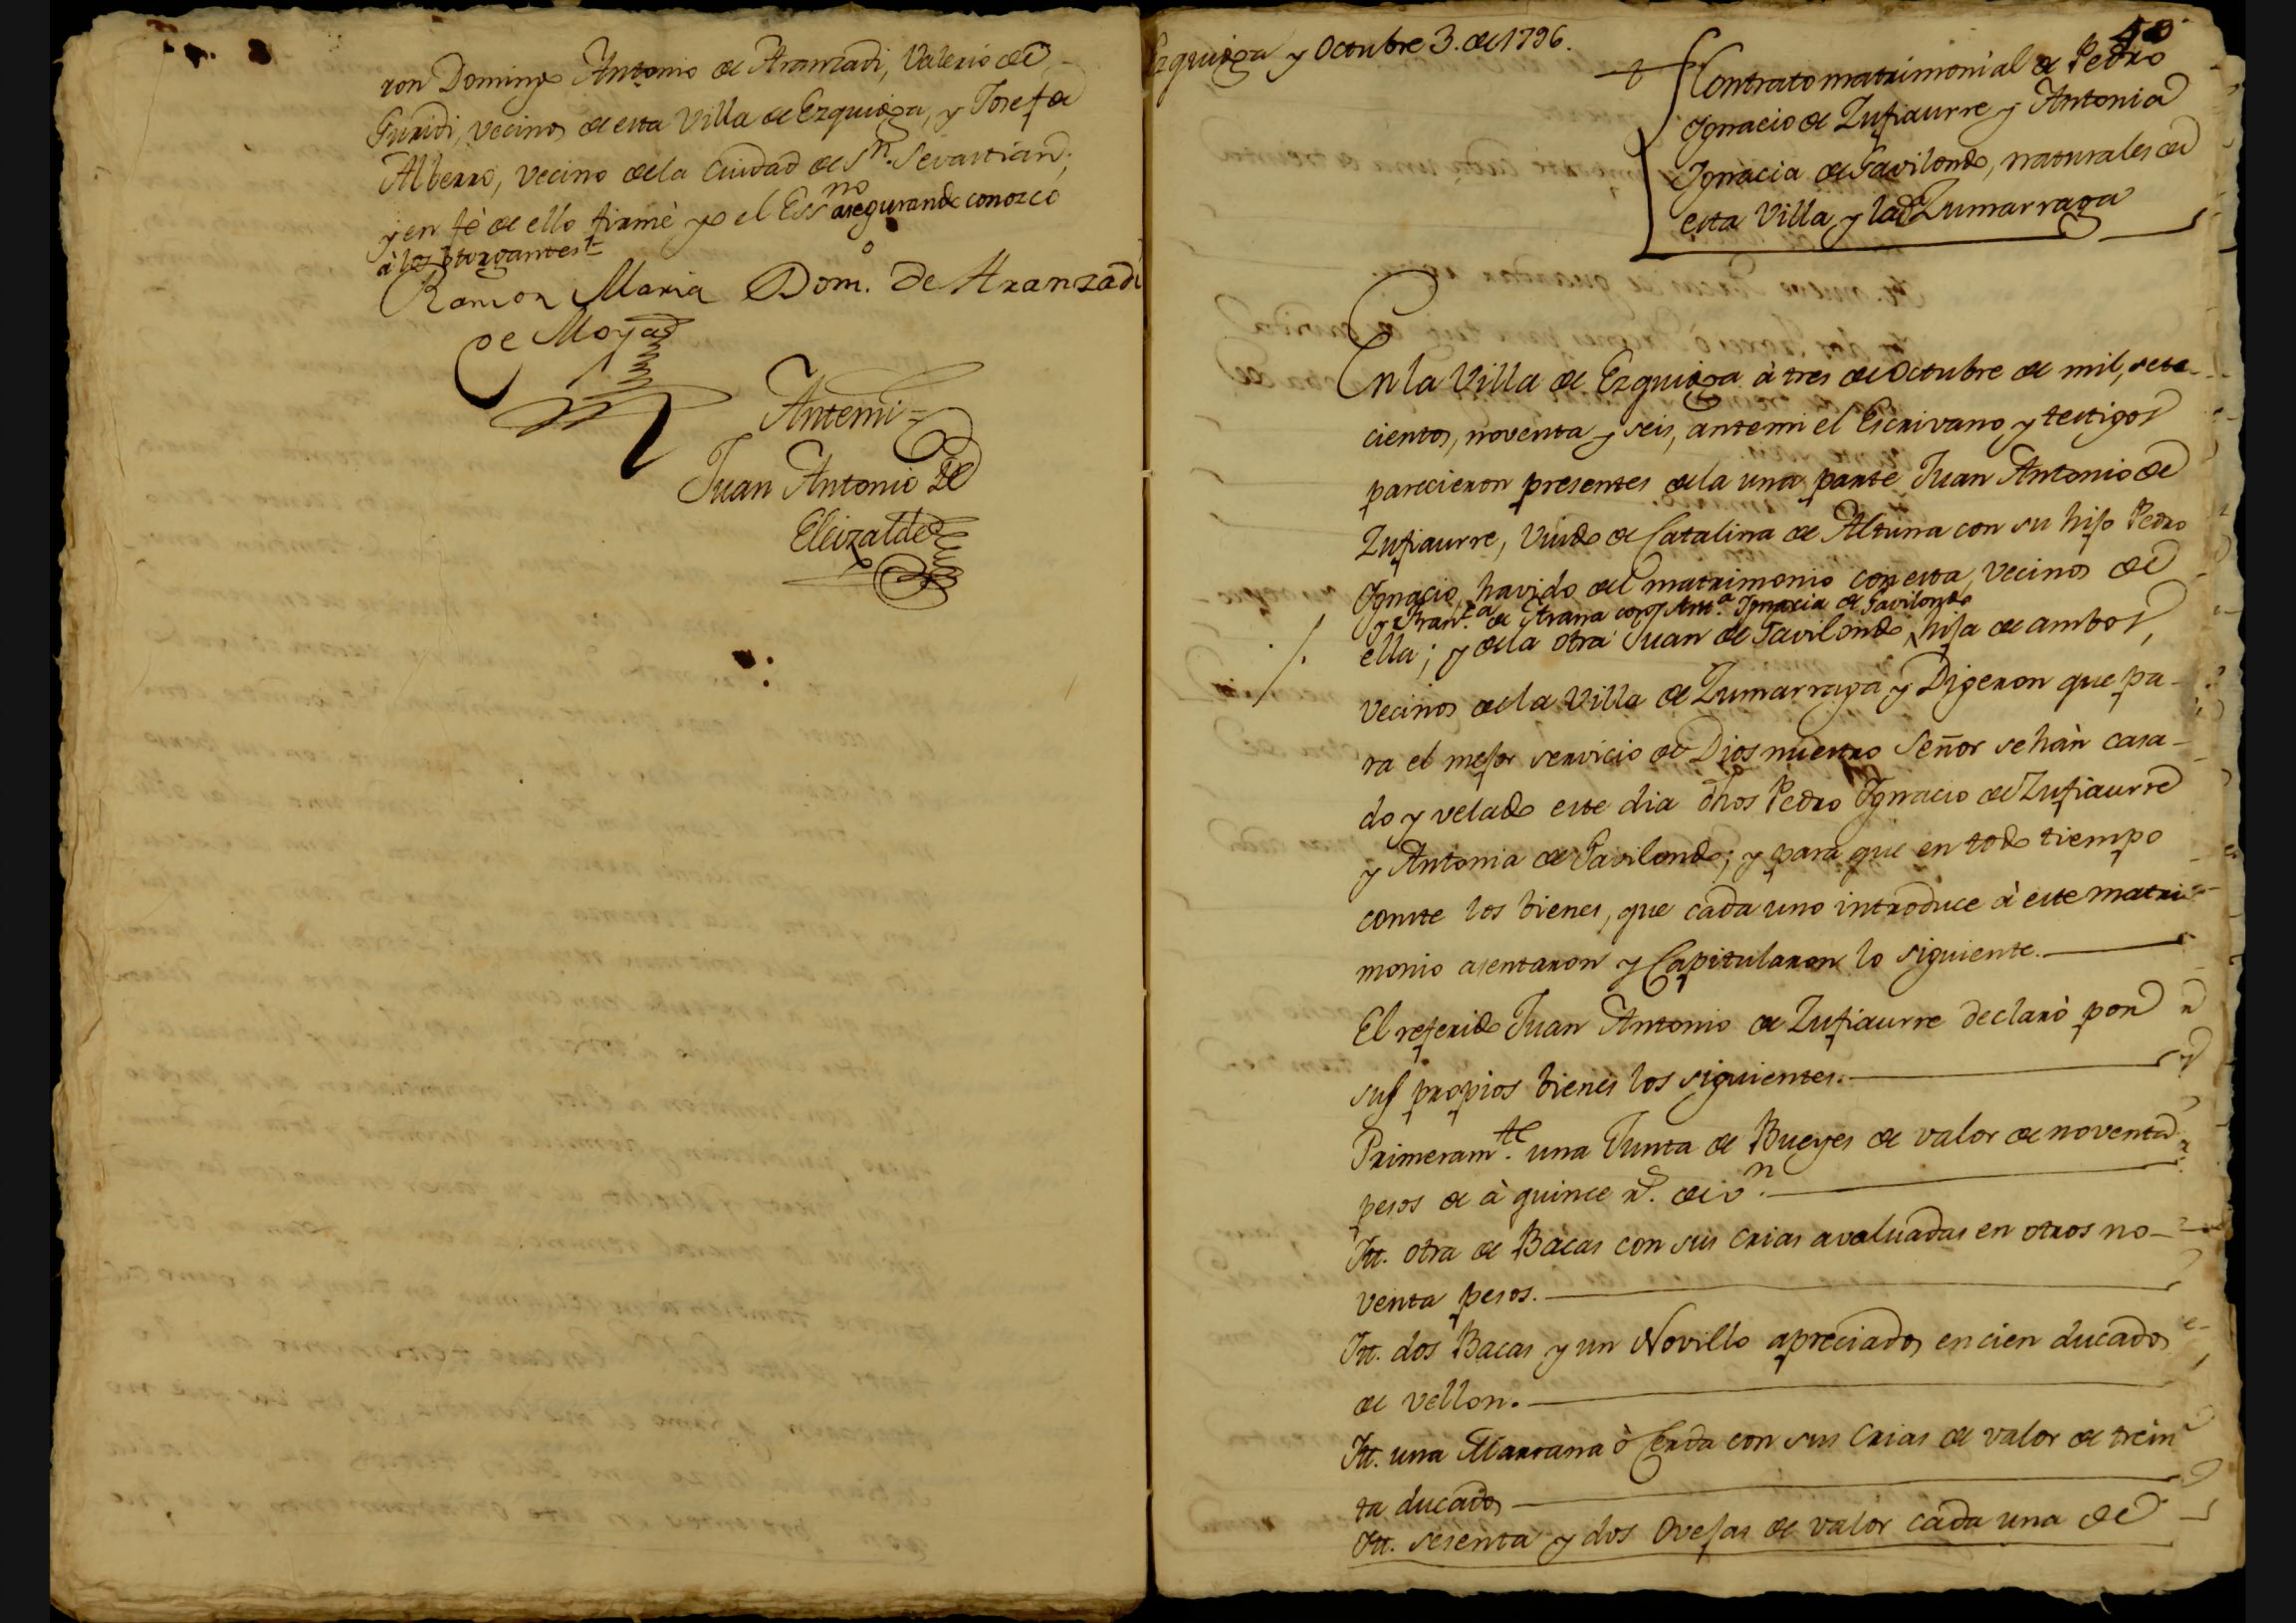 ron Domingo Antonio de Aranzadi, Valerio de
Guridi, vecinos de esta Villa de Ezquioga, y Josef de
Alberro, vecino de la Ciudad de Sn. Sevastian;
y en fè de ello firmè yo el Essno asegurando conozco
à los otorgantes
Ramon Maria Domo. de Aranzadi
de Moya
Antemi
Juan Antonio de
Eleizalde
Ezquioga y Octubre 3. de 1796.
40
Contrato matrimonial de Pedro
Ignacio de Zufiaurre y Antonia
Ignacia de Gavilondo, naturales de
esta Villa y la de Zumarraga
En la Villa de Ezquioga à tres de Octubre de mil, sete-
cientos, noventa y seis, antemi el Escrivano y testigos
parecieron presentes de la una parte Juan Antonio de
Zufiaurre, Viudo de Catalina de Altuna con su hijo Pedro
Ignacio, havido del matrimonio con esta, vecinos de
y Franca. de Arana con Anta. Ignacia de Gavilondo
ella; y de la otra Juan de Gavilondo, hija de ambos,
vecinos de la Villa de Zumarraga y Digeron que pa-
ra el mejor servicio de Dios nuestro Señor se hàn casa-
do y velado este dia dhos Pedro Ignacio de Zufiaurre
y Antonia de Gavilondo; y para que en todo tiempo
conste los bienes, que cada uno introduce à este matri-
monio asentaron y Capitularon lo siguiente.
El referido Juan Antonio de Zufiaurre declarò por
sus propios bienes los siguientes.
Primeramte. una Junta de Bueyes de valor de noventa
pesos de à quince rs. de vn.
Itt. otra de Bacas con sus crias avaluadas en otros no-
venta pesos.
Itt. dos Bacas y un Novillo apreciados en cien ducados
de vellon.
Itt. una Marrana ò Cerda con sus Crias de valor de trein
ta ducados
Itt. sesenta y dos Ovejas de valor cada una de